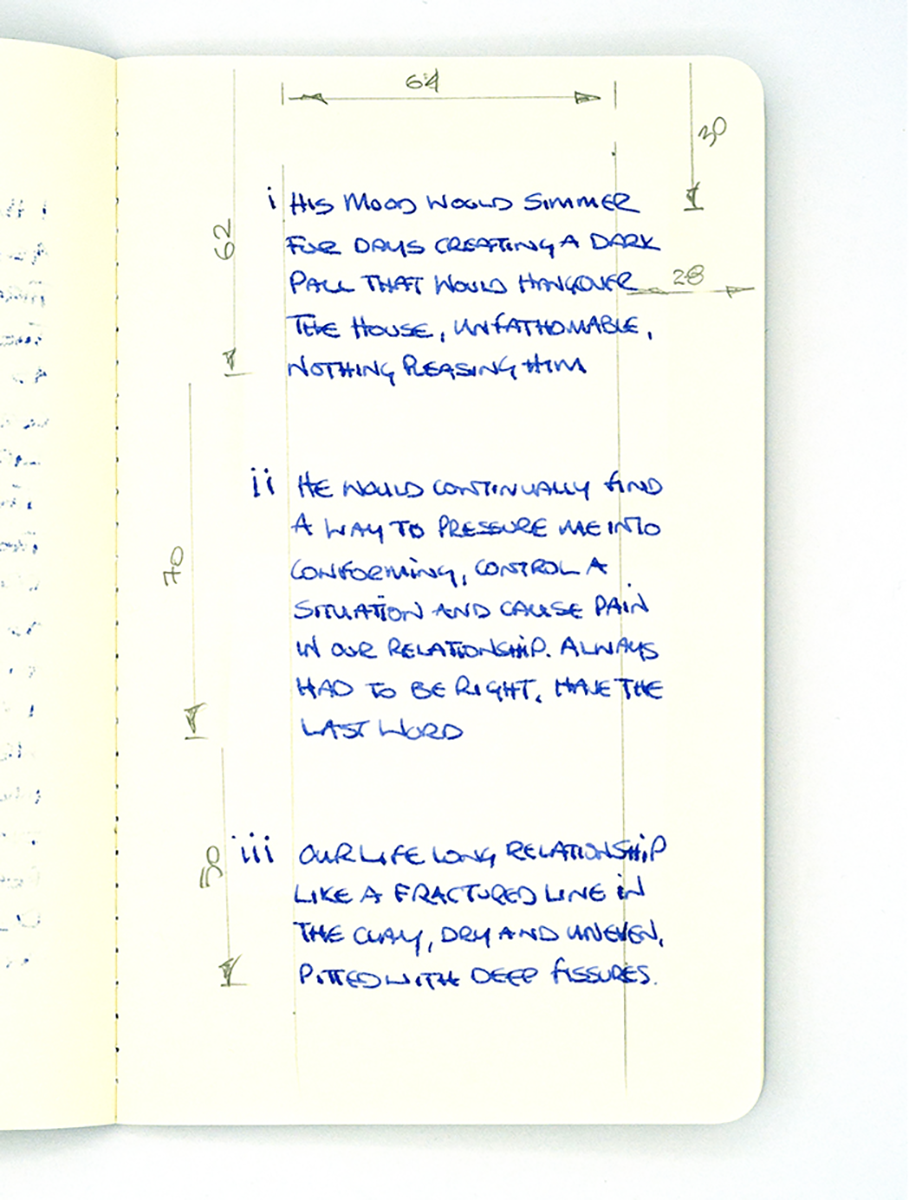 64
30
i HIS MOOD WOULD SIMMER
62
FOR DAYS CREATING A DARK
PALL THAT WOULD HANGOVER
28
THE HOUSE, UNFATHOMABLE,
NOTHING PLEASING HIM
ii HE WOULD CONTINUALLY FIND
A WAY TO PRESSURE ME INTO
CONFORMING, CONTROL A
70
SITUATION AND CAUSE PAIN
IN OUR RELATIONSHIP. ALWAYS
HAD TO BE RIGHT, HAVE THE
LAST WORD
iii OUR LIFE LONG RELATIONSHIP
50
LIKE A FRACTURED LINE IN
THE CLAY, DRY AND UNEVEN,
PITTED WITH DEEP FISSURES.